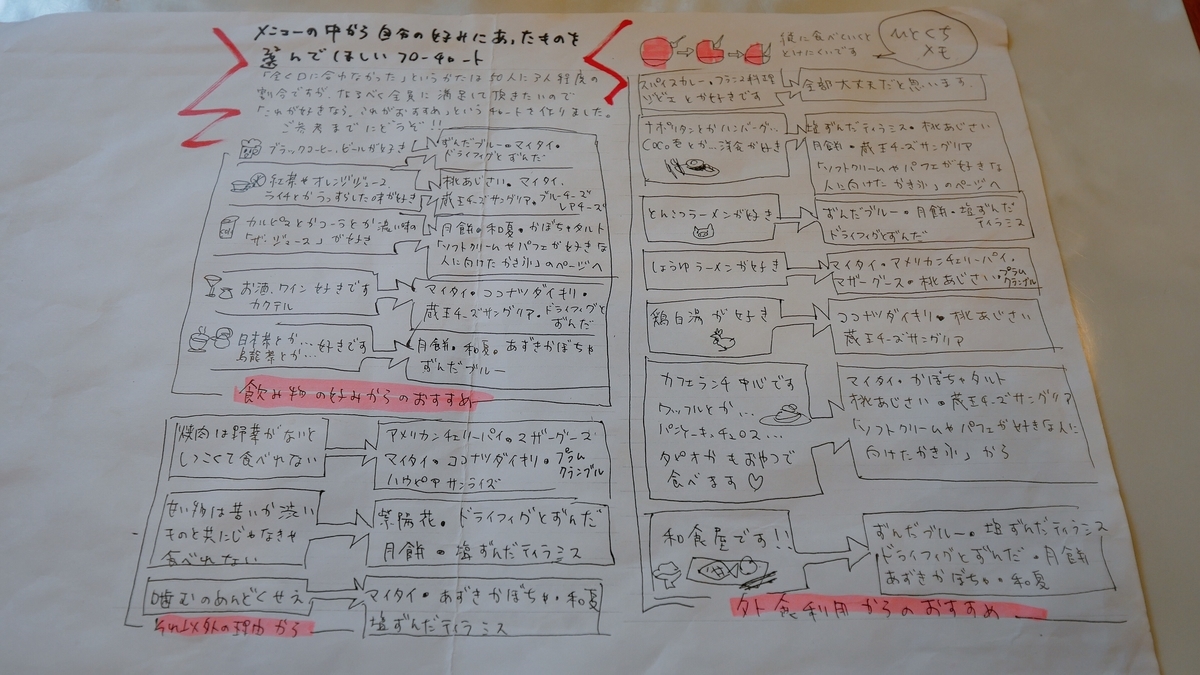 メニューの中から自分の好みにあったものを
選んでほしいフローチャート
「全く口に合わなかった」というかたは50人に3人程度の
割合ですが、なるべく全員に満足して頂きたいので
「これが好きなら、これがおすすめ」というチャートを作りました。
ご参考までにどうぞ!!
ブラックコーヒー、ビールが好き
ずんだブルー・マイタイ・
ドライフィグとずんだ
紅茶やオレンジジュース
ライチとかうっすらした味が好き
桃あじさい・マイタイ・
蔵王チーズサングリア・ブルーチーズ
レアチーズ
カルピスとかコーラとか濃い味の
「ザ・ジュース」が好き
月餅・和夏・かぼちゃタルト
「ソフトクリームやパフェが好きな
人に向けたかき氷」のページへ
お酒、ワイン好きです
カクテル
マイタイ・ココナツダイキリ・
蔵王チーズサングリア・ドライフィグと
ずんだ
日本茶とか…
烏龍茶とか…
好きです
月餅・和夏・あずきかぼちゃ
ずんだブルー
飲み物の好みからのおすすめ
焼肉は野菜がないと
しつこくて食べれない
アメリカンチェリーパイ・マザーグース
マイタイ・ココナツダイキリ・プラム
クランブル
ハウピアサンライズ
甘い物は苦いか渋い
ものと共にじゃなきゃ
食べれない
紫陽花・ドライフィグとずんだ
月餅・塩ずんだティラミス
噛むのめんどくせえ
マイタイ・あずきかぼちゃ・和夏
塩ずんだティラミス
それ以外の理由から
縦に食べていくと
とけにくいです
ひとくち
メモ
スパイスカレー・フランス料理
ジビエとか好きです
全部大丈夫だと思います。
ナポリタンとかハンバーグ…
COCO壱とか…洋食が好き
塩ずんだティラミス・桃あじさい
月餅・蔵王チーズサングリア
「ソフトクリームやパフェが好きな
人に向けたかき氷」のページへ
とんこつラーメンが好き
ずんだブルー・月餅・塩ずんだ
ティラミス
ドライフィグとずんだ
しょうゆラーメンが好き
マイタイ・アメリカンチェリーパイ・
マザーグース・桃あじさい・プラム
クランブル
鶏白湯が好き
ココナツダイキリ・桃あじさい
蔵王チーズサングリア
カフェランチ中心です
ワッフルとか…
パンケーキ、チュロス…
タピオカもおやつで
食べます♡
マイタイ・かぼちゃタルト
桃あじさい・蔵王チーズサングリア
「ソフトクリームやパフェが好きな人に
向けたかき氷」から
和食屋です!!
ずんだブルー・塩ずんだティラミス
ドライフィグとずんだ・月餅
あずきかぼちゃ・和夏
外食利用からのおすすめ